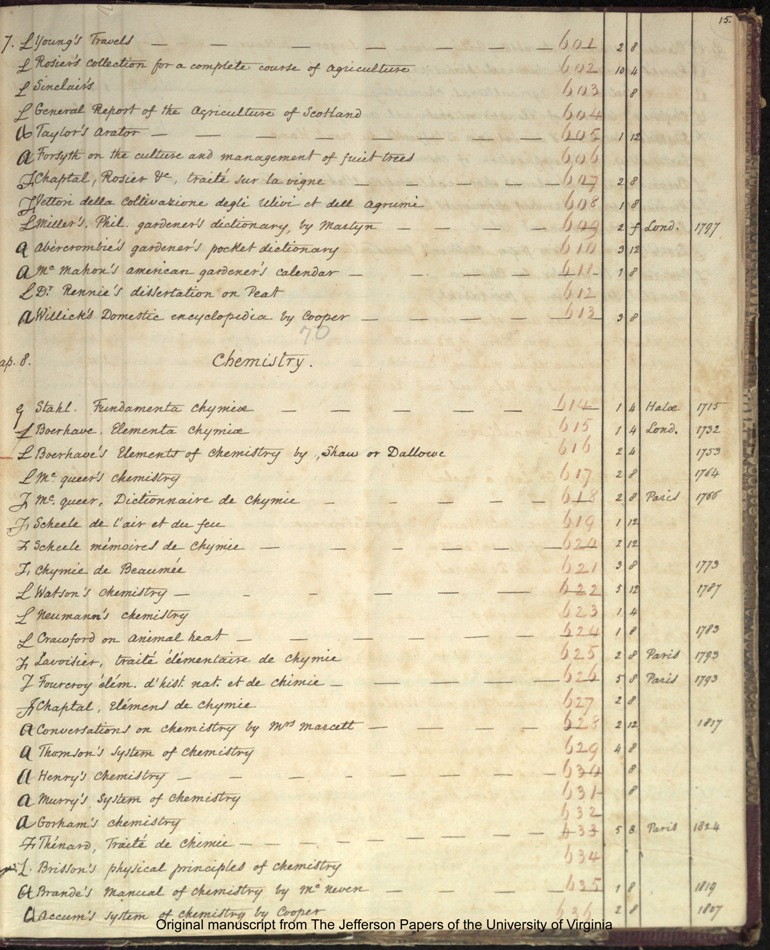 15.
7. L Young's Travels — — — — — — — 601 2 8
L Rosier's collection for a complete course of agriculture 602 10 4
L Sinclair's 603 8
L General Report of the Agriculture of Scotland 604
a Taylor's Arator — — — — — — — 605 1 12
a Forsyth on the culture and management of fruit trees 606
F Chaptal, Rosier &c, traité sur la vigne — — — — 607 2 8
Vettori della coltivazione degli Ulivi et dell Agrumi 608 1 8
L Miller's Phil. gardener's dictionary, by Martyn — — — 609 2 f Lond. 1797
a Abercrombie's gardener's pocket dictionary 610 3 12
a Mc Mahon's american gardener's calendar — — — — 611 1 8
L Dr Rennie's dissertation on Peat 612
a Willick's Domestic encyclopedia by Cooper — — — — 613 3 8
70
ap. 8. Chemistry.
g Stahl. Fundamenta Chymiæ — — — — — 614 1 4 Halæ 1715
L Boerhave. Elementa Chymiæ 615 1 4 Lond. 1732
L Boerhave's Elements of chemistry by Shaw or Dallowe 616 2 4 1753
L Mc queer's chemistry 617 2 8 1764
F Mc. queer, Dictionnaire de Chymie — — — — — 618 2 8 Paris 1766
F Scheele de l'air et du feu 619 1 12
F Scheele mémoires de Chymie — — — — — 620 2 12
F Chymie de Beaumée 621 3 8 1773
L Watson's chemistry — — — — — — 622 5 12 1787
L Neumann's chemistry 623 1 4
L Crawford on animal heat — — — — — — 624 1 8 1783
F Lavoisier, traité élémentaire de Chymie 625 2 8 Paris 1793
F Fourcroy élém. d'hist. nat. et de chimie — — — — 626 5 8 Paris 1793
F Chaptal, Elémens de Chymie 627 2 8
a Conversations on chemistry by Mrs Marcett — — — — 628 2 12 1817
a Thomson's System of Chemistry 629 4 8
a Henry's Chemistry — — — — — — — 630 8
a Murry's System of Chemistry 631 8
a Gorham's Chemistry 632
F Thénard, Traité de Chimie — — — — — — 633 5 8 Paris 1824
L. Brisson's physical principles of chemistry 634
a Brande's Manual of chemistry by Mc neven — — — — 635 1 8 1819
a Accum's system of chemistry by Cooper 636 2 8 1807
Original manuscript from The Jefferson Papers of the University of Virginia